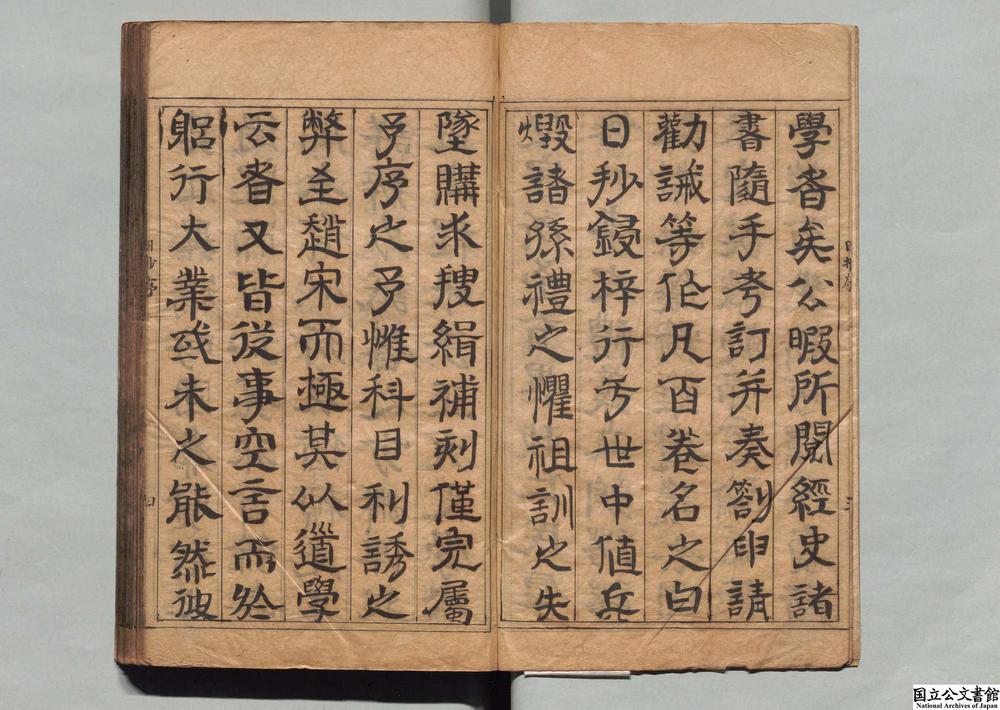 學者矣公暇所閱經史諸
書隨手考訂并奏劄申請
勸誡等作凡百卷名之曰
日抄鋟梓行于世中值兵
燬諸孫禮之懼祖訓之失
墜購求搜緝補刻僅完屬
予序之予惟科目利誘之
弊至趙宋而極其以道學
云者又皆從事空言而於
躬行大業或未之能然彼
三
四
国立公文書館
National Archives of Japan